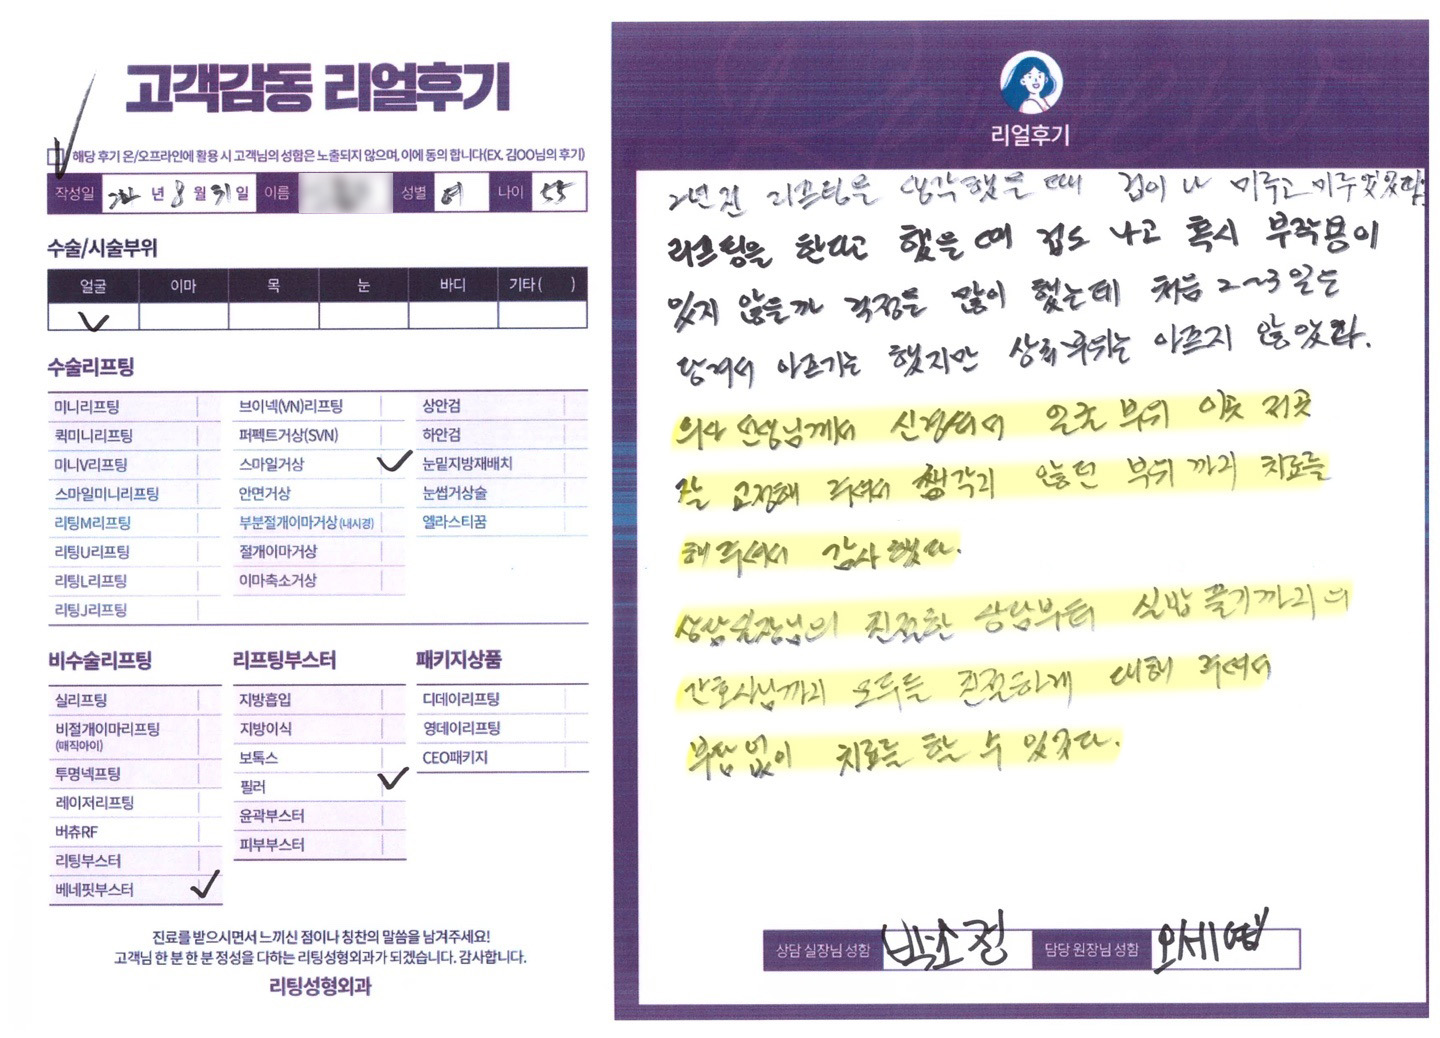 고객감동 리얼후기
해당 후기 온/오프라인에 활용 시 고객님의 성함은 노출되지 않으며, 이에 동의 합니다(EX. 김OO님의 후기)
작성일 년 8 월 31 일 이름 성별 여 나이 55
수술/시술부위
얼굴 이마 목 눈 바디 기타( )
수술리프팅
미니리프팅 브이넥(VN)리프팅 상안검
퀵미니리프팅 퍼펙트거상(SVN) 하안검
미니V리프팅 스마일거상 눈밑지방재배치
스마일미니리프팅 안면거상 눈썹거상술
리팅M리프팅 부분절개이마거상(내시경) 엘라스티꿈
리팅U리프팅 절개이마거상
리팅L리프팅 이마축소거상
리팅J리프팅
비수술리프팅 리프팅부스터 패키지상품
실리프팅 지방흡입 디데이리프팅
비절개이마리프팅 지방이식 영데이리프팅
(매직아이)
투명넥프팅 보톡스 CEO패키지
레이저리프팅 필러
버츄RF 윤곽부스터
리팅부스터 피부부스터
베네핏부스터
진료를 받으시면서 느끼신 점이나 칭찬의 말씀을 남겨주세요!
고객님 한 분 한 분 정성을 다하는 리팅성형외과가 되겠습니다. 감사합니다.
리팅성형외과
리얼후기
2년전 리프팅을 생각했을 때 겁이 나 미루고 미루었었다.
리프팅을 한다고 했을 때 겁도 나고 혹시 부작용이
있지 않을까 걱정을 많이 했는데 처음 2~3일은
당겨서 아프기는 했지만 상처부위는 아프지 않았다.
의사 선생님께서 신경써서 얼굴 부위 이곳 저곳
잘 교정해 주셔서 생각치 않던 부위까지 치료를
해주셔서 감사했다.
상담실장님의 친절한 상담부터 실밥 풀기까지의
간호사님까지 모두들 친절하게 대해 주셔서
부담없이 치료를 할 수 있었다.
상담 실장님 성함 박소정 담당 원장님 성함 오세엽